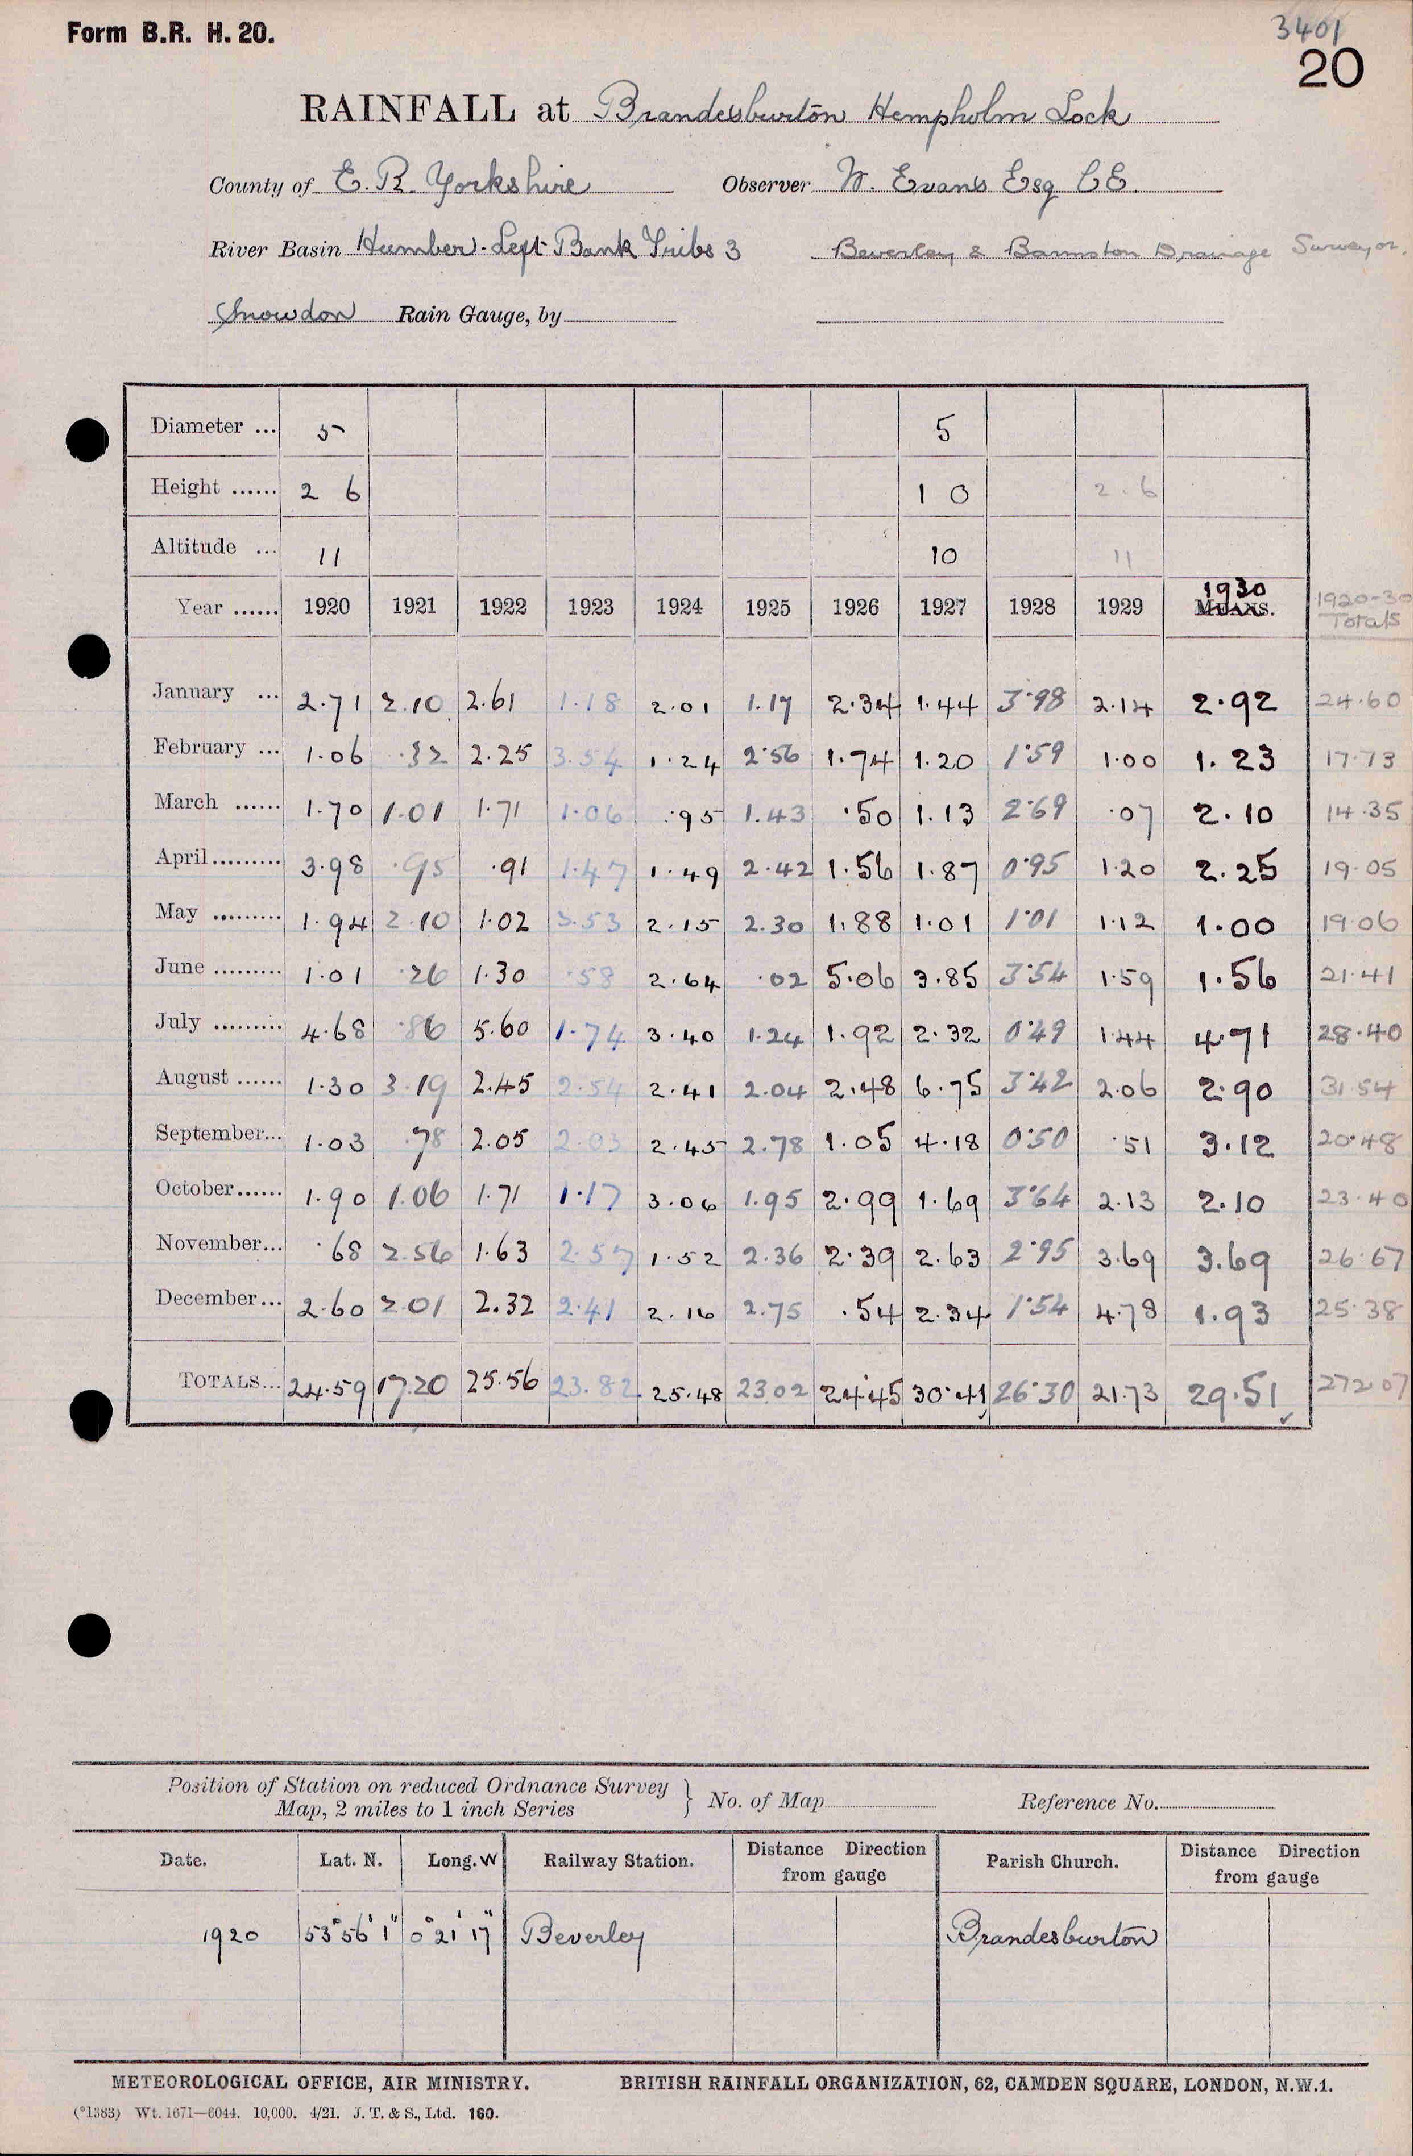 Form B.R. H. 20.
3401
20
RAINFALL at Brandesburton Hempholm Lock
County of E. R. Yorkshire Observer W. Evans Esq C.E.
River Basin Humber. Left Bank Tribs 3 Beverley & Barmston Drainage Surveyor.
Snowdon Rain Gauge, by
Diameter ... 5 5
Height ...... 2 6 1 0 2.6
Altitude ... 11 10 11
Year ...... 1920 1921 1922 1923 1924 1925 1926 1927 1928 1929 1930 MEANS. 1920-30 Totals
January ... 2.71 2.10 2.61 1.18 2.01 1.17 2.34 1.44 3.98 2.14 2.92 24.60
February ... 1.06 .32 2.25 3.54 1.24 2.56 1.74 1.20 1.59 1.00 1.23 17.73
March ...... 1.70 1.01 1.71 1.06 .95 1.43 .50 1.13 2.69 .07 2.10 14.35
April......... 3.98 .95 .91 1.47 1.49 2.42 1.56 1.87 0.95 1.20 2.25 19.05
May ......... 1.94 2.10 1.02 3.53 2.15 2.30 1.88 1.01 1.01 1.12 1.00 19.06
June ......... 1.01 .26 1.30 .58 2.64 .02 5.06 3.85 3.54 1.59 1.56 21.41
July ......... 4.68 .86 5.60 1.74 3.40 1.24 1.92 2.32 0.49 1.44 4.71 28.40
August ...... 1.30 3.19 2.45 2.54 2.41 2.04 2.48 6.75 3.42 2.06 2.90 31.54
September... 1.03 .78 2.05 2.03 2.45 2.78 1.05 4.18 0.50 .51 3.12 20.48
October...... 1.90 1.06 1.71 1.17 3.06 1.95 2.99 1.69 3.64 2.13 2.10 23.40
November... .68 2.56 1.63 2.57 1.52 2.36 2.39 2.63 2.95 3.69 3.69 26.67
December... 2.60 2.01 2.32 2.41 2.16 2.75 .54 2.34 1.54 4.78 1.93 25.38
TOTALS... 24.59 17.20 25.56 23.82 25.48 23.02 24.45 30.41 26.30 21.73 29.51 272.07
Position of Station on reduced Ordnance Survey
Map, 2 miles to 1 inch Series } No. of Map Reference No.
Date. Lat. N. Long. W Railway Station. Distance Direction from gauge Parish Church. Distance Direction from gauge
1920 53° 56' 1" 0° 21' 17" Beverley Brandesburton
METEOROLOGICAL OFFICE, AIR MINISTRY. BRITISH RAINFALL ORGANIZATION, 62, CAMDEN SQUARE, LONDON, N.W.1.
(*1383) Wt. 1671—6044. 10,000. 4/21. J. T. & S., Ltd. 160.